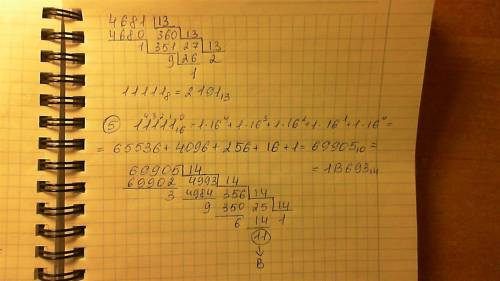 4681 | 13
4680 360 | 13
1 351 27 | 13
9 26 2
1
11111₈ = 2191₁₃
⑤ 1⁴1³1²1¹1⁰₁₆ = 1·16⁴+1·16³+1·16²+1·16¹+1·16⁰ =
= 65536+4096+256+16+1 = 69905₁₀ =
= 1B693₁₄
69905 | 14
69902 4993 | 14
3 4984 356 | 14
9 350 25 | 14
6 14 1
11
↓
B